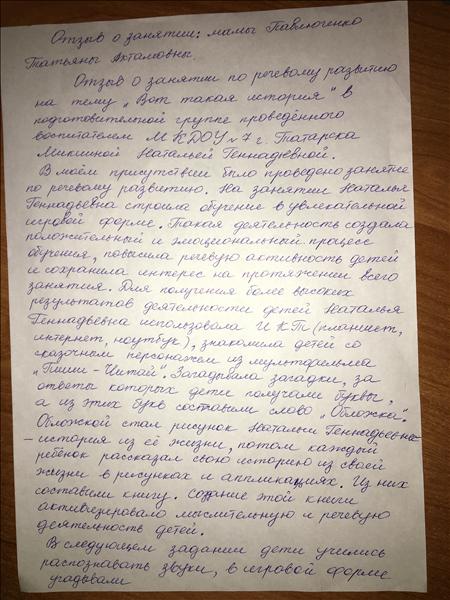 Отзыв о занятии: мамы Павлюченко
Татьяны Ахтамовны.
Отзыв о занятии по речевому развитию
на тему „Вот такая история" в
подготовительной группе проведённого
воспитателем МКДОУ №7 г. Татарска
Микшиной Натальей Геннадьевной.
В моём присутствии было проведено занятие
по речевому развитию. На занятии Наталья
Геннадьевна строила обучение в увлекательной
игровой форме. Такая деятельность создала
положительный и эмоциональный процесс
обучения, повысила речевую активность детей
и сохранила интерес на протяжении всего
занятия. Для получения более высоких
результатов деятельности детей Наталья
Геннадьевна использовала ИКТ (планшет,
интернет, ноутбук), знакомила детей со
сказочным персонажем из мультфильма
„Пиши - Читай". Загадывала загадки, за
ответы которых дети получали буквы,
а из этих букв составили слово „Обложка".
Обложкой стал рисунок Натальи Геннадьевны
– история из её жизни, потом каждый
ребёнок рассказал свою историю из своей
жизни в рисунках и аппликациях. Из них
составили книгу. Создание этой книги
активизировало мыслительную и речевую
деятельность детей.
В следующем задании дети учились
распознавать звуки, в игровой форме
угадывали